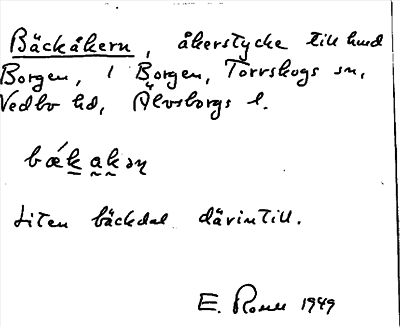 Bäckåkern, åkerstycke till hmd
Borgen, 1 Borgen, Torrskogs sn,
Vedbo hd, Älvsborgs l.
bǽk ak ən
Liten bäckdal därintill.
E. 1949